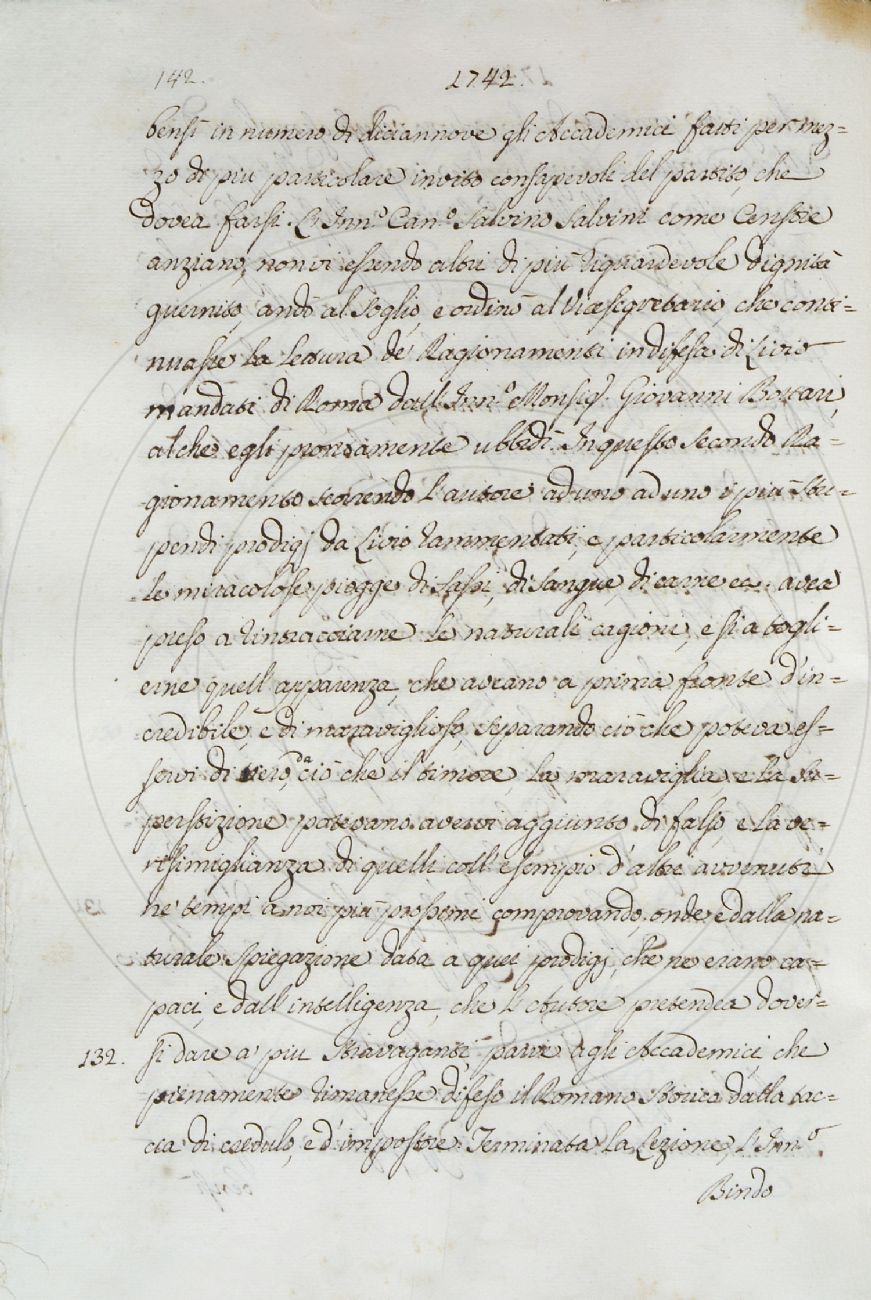 142.
1742.
bensì in numero di diciannove gli Accademici fatti per mez=
zo di più particolare invito consapevoli del partito, che
dovea farsi. L'Inn.º Can.º Salvino Salvini come Censore
anziano, non vi essendo altri di più riguardevole dignità
guernito, andò al Soglio, e ordinò al Vicesegretario, che conti=
nuasse la lettura de' Ragionamenti in difesa di Livio
mandati di Roma dall'Inn.º Monsig.r Giovanni Bottari,
al che egli prontamente ubbidì. In questo secondo Ra=
gionamento scorrendo l'autore ad uno ad uno i più stu=
pendi prodigj da Livio rammentati, e particolarmente
le miracolose piogge di sassi, di sangue, di carne ec. avea
preso a rintracciarne le naturali cagioni, e sì a togli=
erne quell'apparenza, che aveano a prima fronte d'in=
credibile, e di maraviglioso, separando ciò che poteva es=
servi di vero, da ciò che il timore, la maraviglia, e la su=
perstizione potevano avervi aggiunto di falso, e la ve=
risimiglianza di quelli coll'esempio d'altri avvenuti
ne' tempi a noi più prossimi comprovando, onde e dalla na=
turale spiegazione data a quei prodigj, che ne erano ca=
paci, e dall'intelligenza, che l'Autore pretendea dover=
132.
si dare a' più stravaganti, parve agli Accademici, che
pienamente rimanesse difeso il Romano Storico dalla tac=
cia di credulo, e d'impostore. Terminata la Lezione, l'Inn.º
Bindo